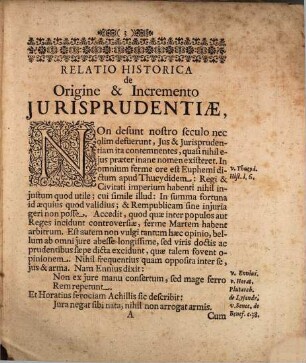 ( 3 )
RELATIO HISTORICA
de
Origine & Incremento
JURISPRUDENTIÆ,
NOn desunt nostro seculo nec
olim defuerunt, Jus & Jurispruden-
tiam ita contemnentes, quasi nihil e-
jus præter inane nomen existeret. In
omnium ferme ore est Euphemi di-
ctum apud Thucydidem: Regi &
Civitati imperium habenti nihil in-
justum quod utile; cui simile illud: In summa fortuna
id æquius quod validius; & Rempublicam sine injuria
geri non posse. Accedit, quod quæ inter populos aut
Reges incidunt controversiæ, ferme Martem habent
arbitrum. Est autem non vulgi tantum hæc opinio, bel-
lum ab omni jure abesse longissime, sed viris doctis ac
prudentibus sæpe dicta excidunt, quæ talem fovent o-
pinionem. Nihil frequentius quam opposita inter se,
jus & arma. Nam Ennius dixit:
Non ex jure manu consertum, sed mage ferro
Rem repetunt.
Et Horatius ferociam Achillis sic describit:
Jura negat sibi nata, nihil non arrogat armis.
A Cum
v. Thucyd.
Hist. l. 6.
v. Ennius.
v. Horat.
Plutarch.
de Lysandr.
v. Senec. de
Benef. c. 38.